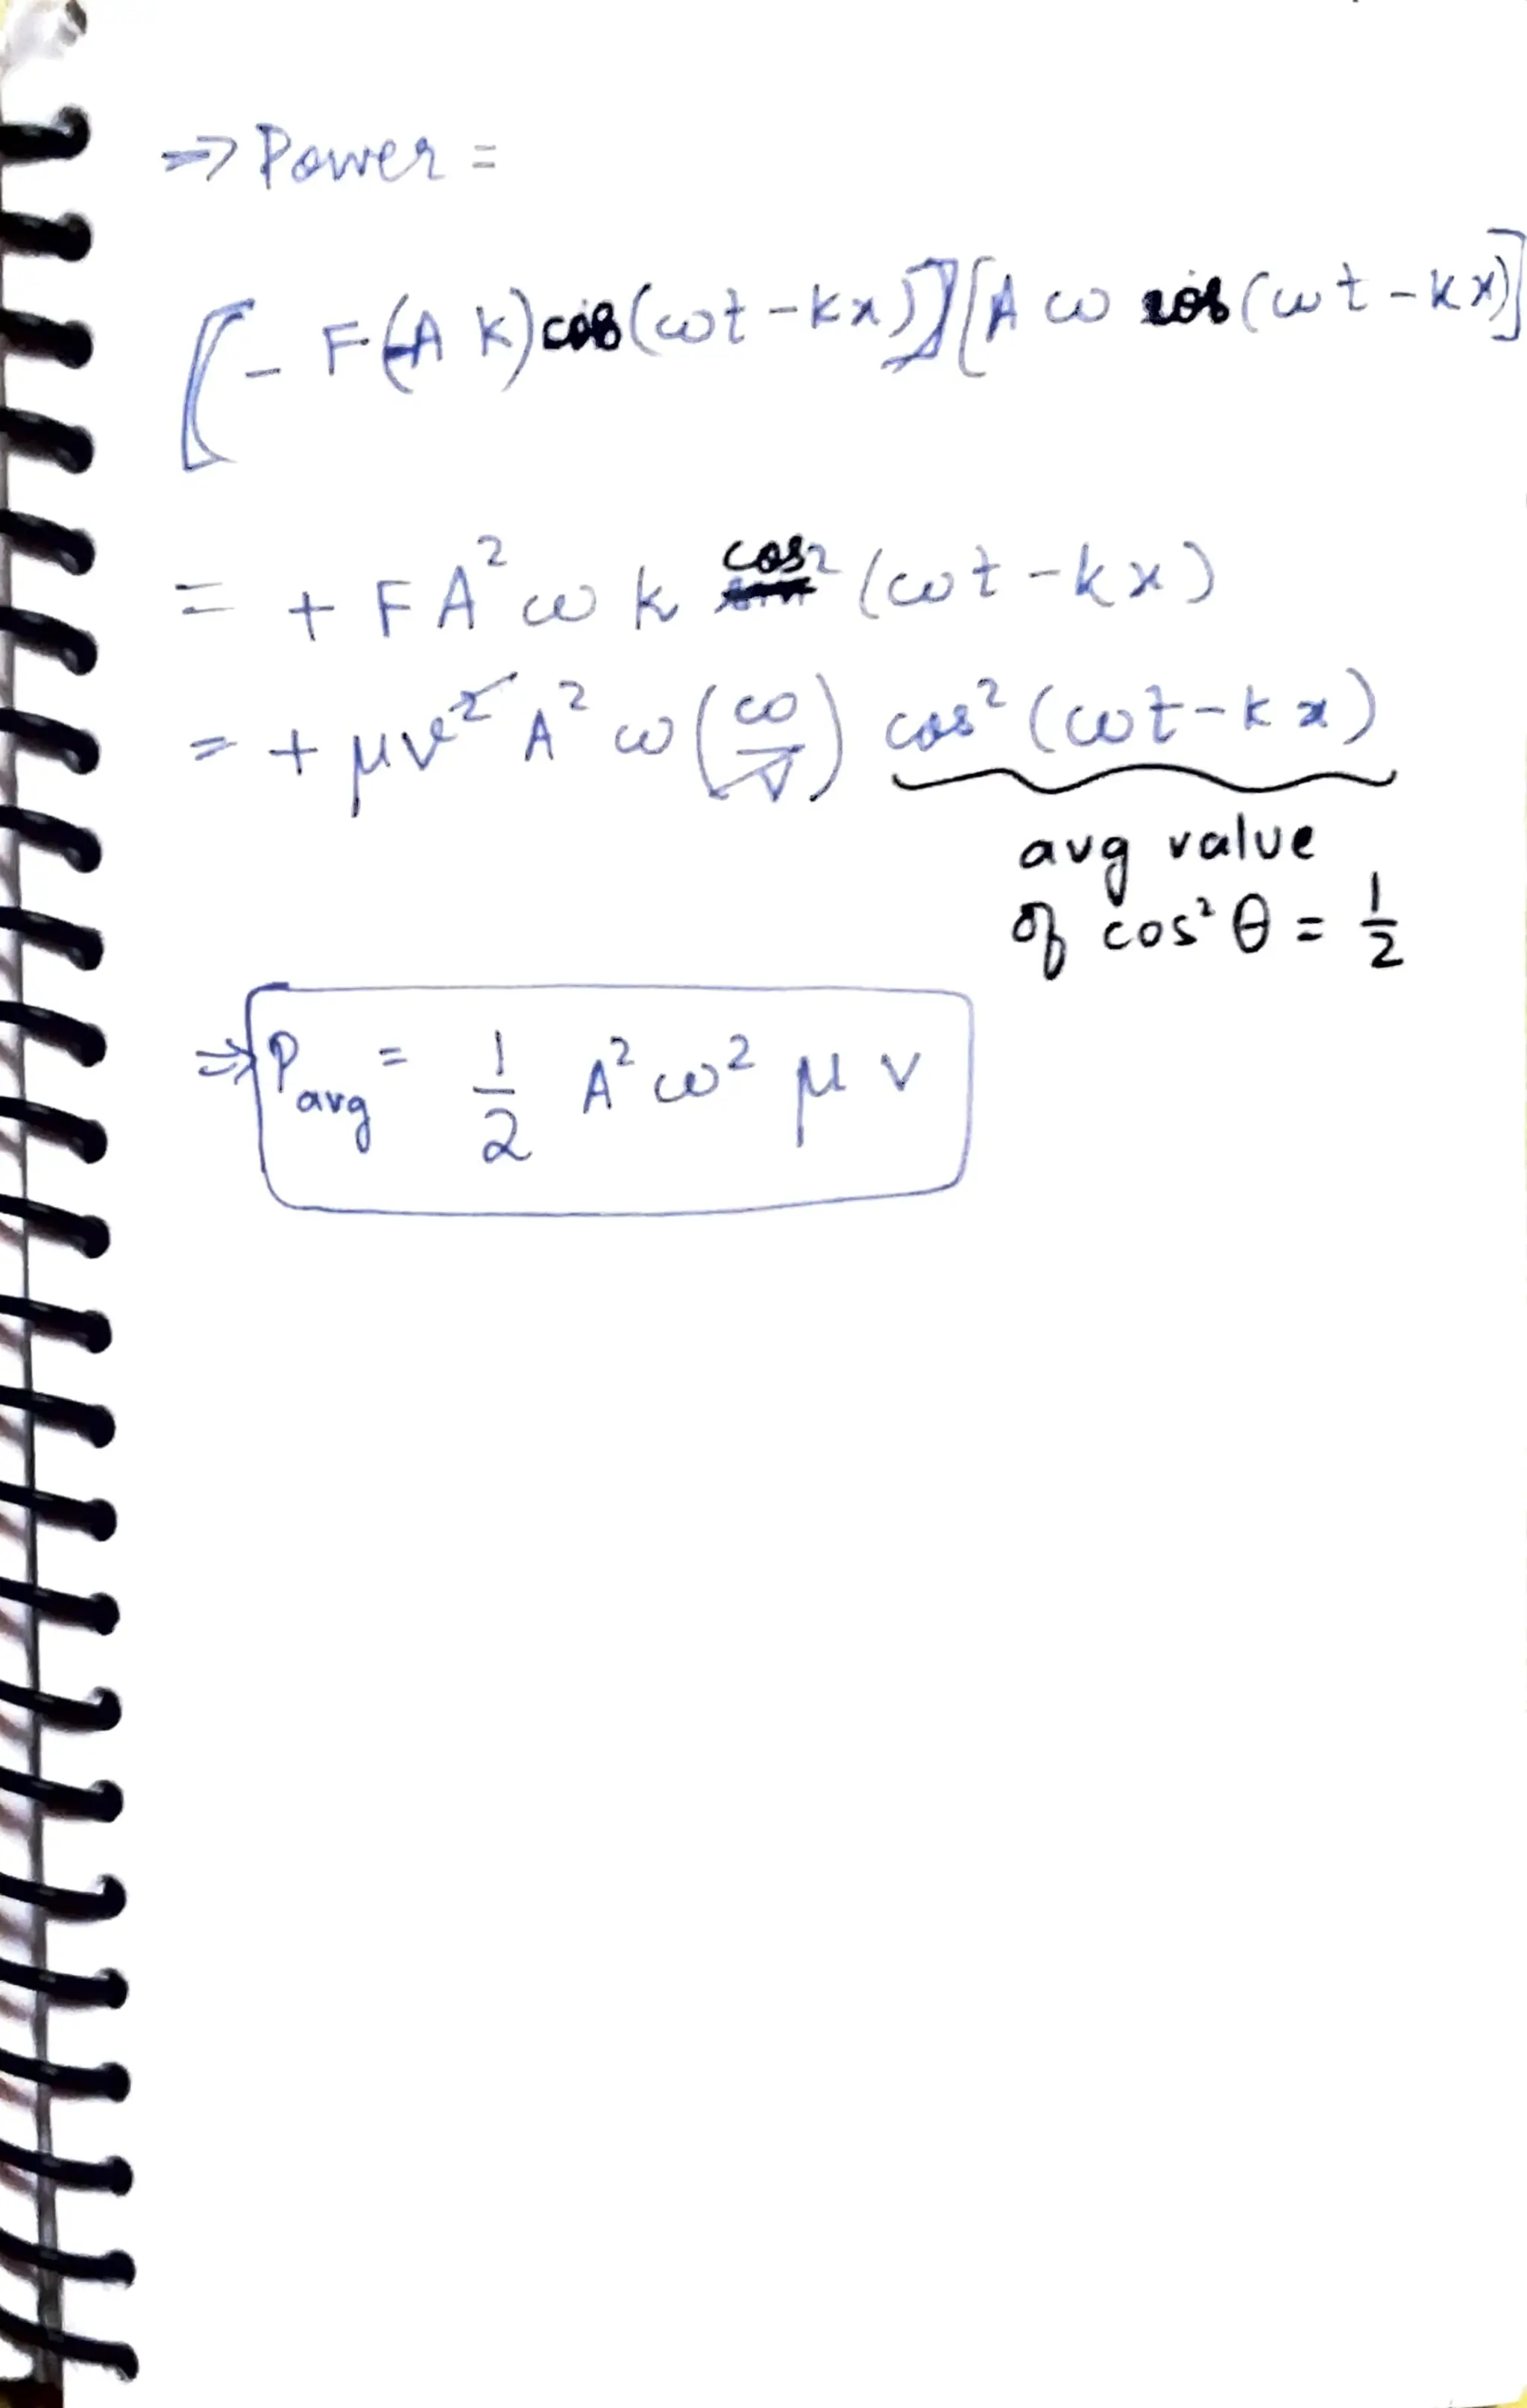 ⇒ Power =
[- F(-A k) cos(ωt - kx)] [A ω cos(ωt - kx)]
= + F A² ω k cos² (ωt - kx)
= + μv² A² ω (ω/v) cos² (ωt - kx)
avg value
of cos² θ = 1/2
⇒ P avg = 1/2 A² ω² μ v